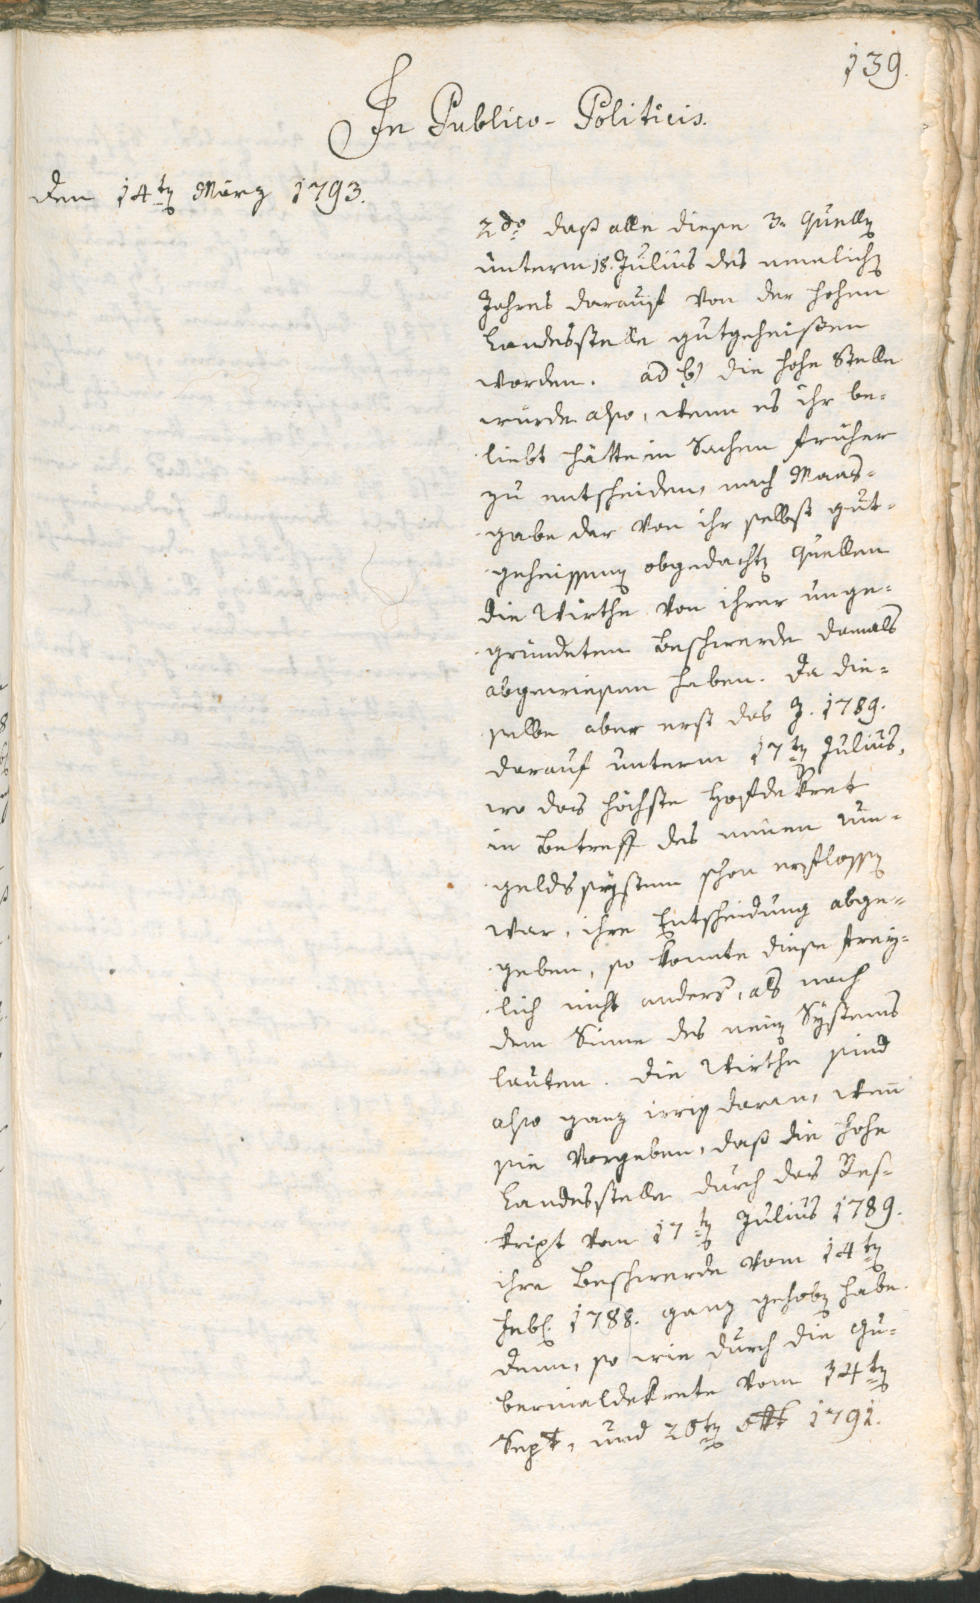 139.
In Publico-Politicis.
Den 14tn März 1793.
2do daß alle diese 3 Quelln
unterm 18. Julius des nemlichn
Jahres darauf von der hohen
Landesstelle gutgeheißen
worden. ad b) die hohe Stelle
würde also, wenn es ihr be-
liebt hätte in Sachen früher
zu entscheiden, nach Maas-
gabe der von ihr selbst gut-
geheissenen obgedachtn Quellen
die Wirthe von ihrer unge-
gründeten Beschwerde damals
abgewiesen haben. Da die-
selbe aber erst das J. 1789.
darauf unterm 17tn Julius,
wo das höchste Hofdekret
in Betreff des neuen Um-
geldssystem schon erflossn
war, ihre Entscheidung abge-
geben, so konnte diese frey-
lich nicht anders, als nach
dem Sinne des neun Systems
lauten. Die Wirthe sind
also ganz irrig daran, wenn
sie vorgeben, daß die hohe
Landesstelle durch das Res-
kript vom 17tn Julius 1789.
ihre Beschwerde vom 14tn
Feb. 1788. ganz gehobn habe.
Denn, so wie durch die Gu-
bernialdekrete vom 14tn
Sept, und 28tn 8tb 1791.